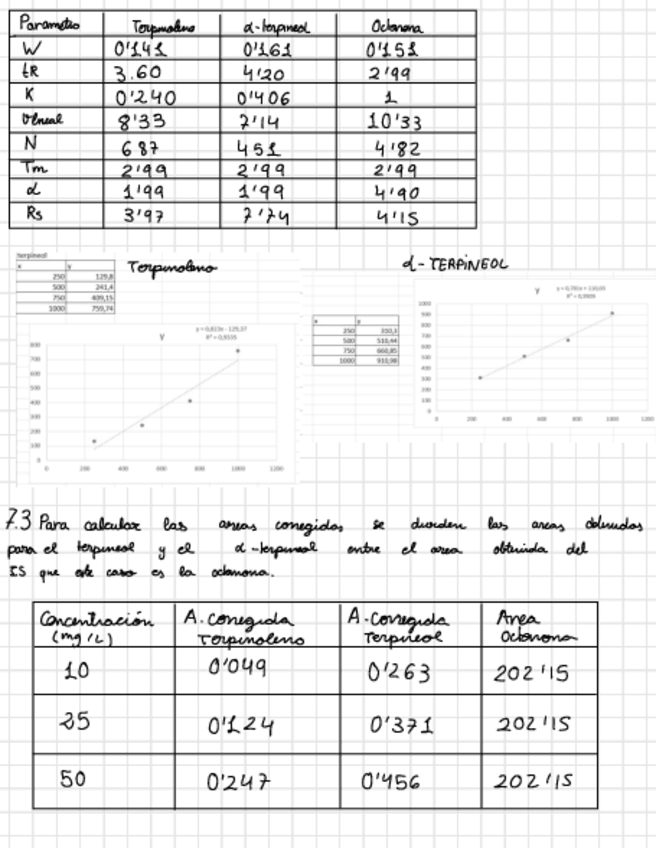 Parametro Terpinoleno α-terpineol Octanona
W 0'141 0'161 0'151
tR 3.60 4'20 2'99
K 0'240 0'406 1
8'33 7'14 10'33
N 687 451 4'82
Tm 2'99 2'99 2'99
α 1'99 1'99 4'90
Rs 3'97 7'74 4'15
terpineol
Terpinoleno
x y
250 129,8
500 241,4
750 409,15
1000 759,74
y
800
700
600
500
400
300
200
100
0
0 200 400 600 800 1000 1200
α-TERPiNEOL
x y
250 310,3
500 510,44
750 660,85
1000 910,98
y
1000
900
800
700
600
500
400
300
200
100
0
0 200 400 600 800 1000 1200
7.3 Para calcular las areas coregidas se dividen las areas obtenidas
para el terpineol y el α-terpineol entre el area obtenida del
IS que este caso es la octanona.
Concentración (mg/L) A. Coregida Terpinoleno A. Corregida Terpineol Area Octanona
10 0'049 0'263 202'15
25 0'124 0'371 202'15
50 0'247 0'456 202'15